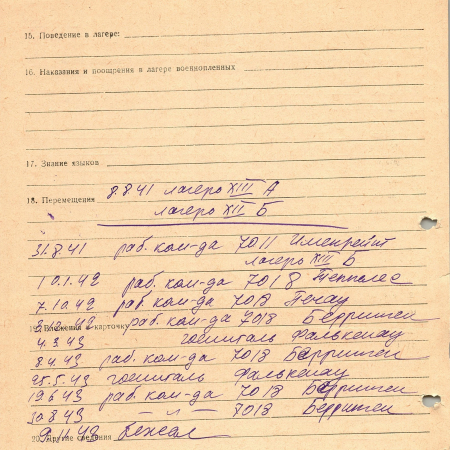 15. Поведение в лагере:
16. Наказания и поощрения в лагере военнопленных
17. Знание языков
18. Перемещения 8.8.41 лагерь XIII А
лагерь XII Б
31.8.41 раб. ком-да 7011
лагерь XIII Б
10.1.42 раб. ком-да 7018
7.10.42 раб ком-да 7018
19. Вложения в карточку раб. ком-да 7018 Берринген
4.3.43 госпиталь Фалькенау
8.4.43 раб. ком-да 7018 Берринген
25.5.43 госпиталь Фалькенау
19.6.43 раб. ком-да 7018 Берринген
30.8.43 — " — 7018 Берринген
20. Другие сведения Бежал